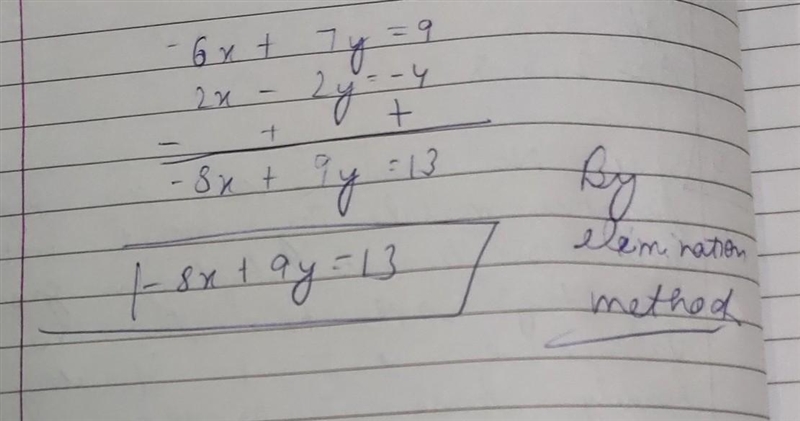 -6x + 7y = 9
2x - 2y = -4
- + +
-8x + 9y = 13
-8x + 9y = 13
By
elemination
method